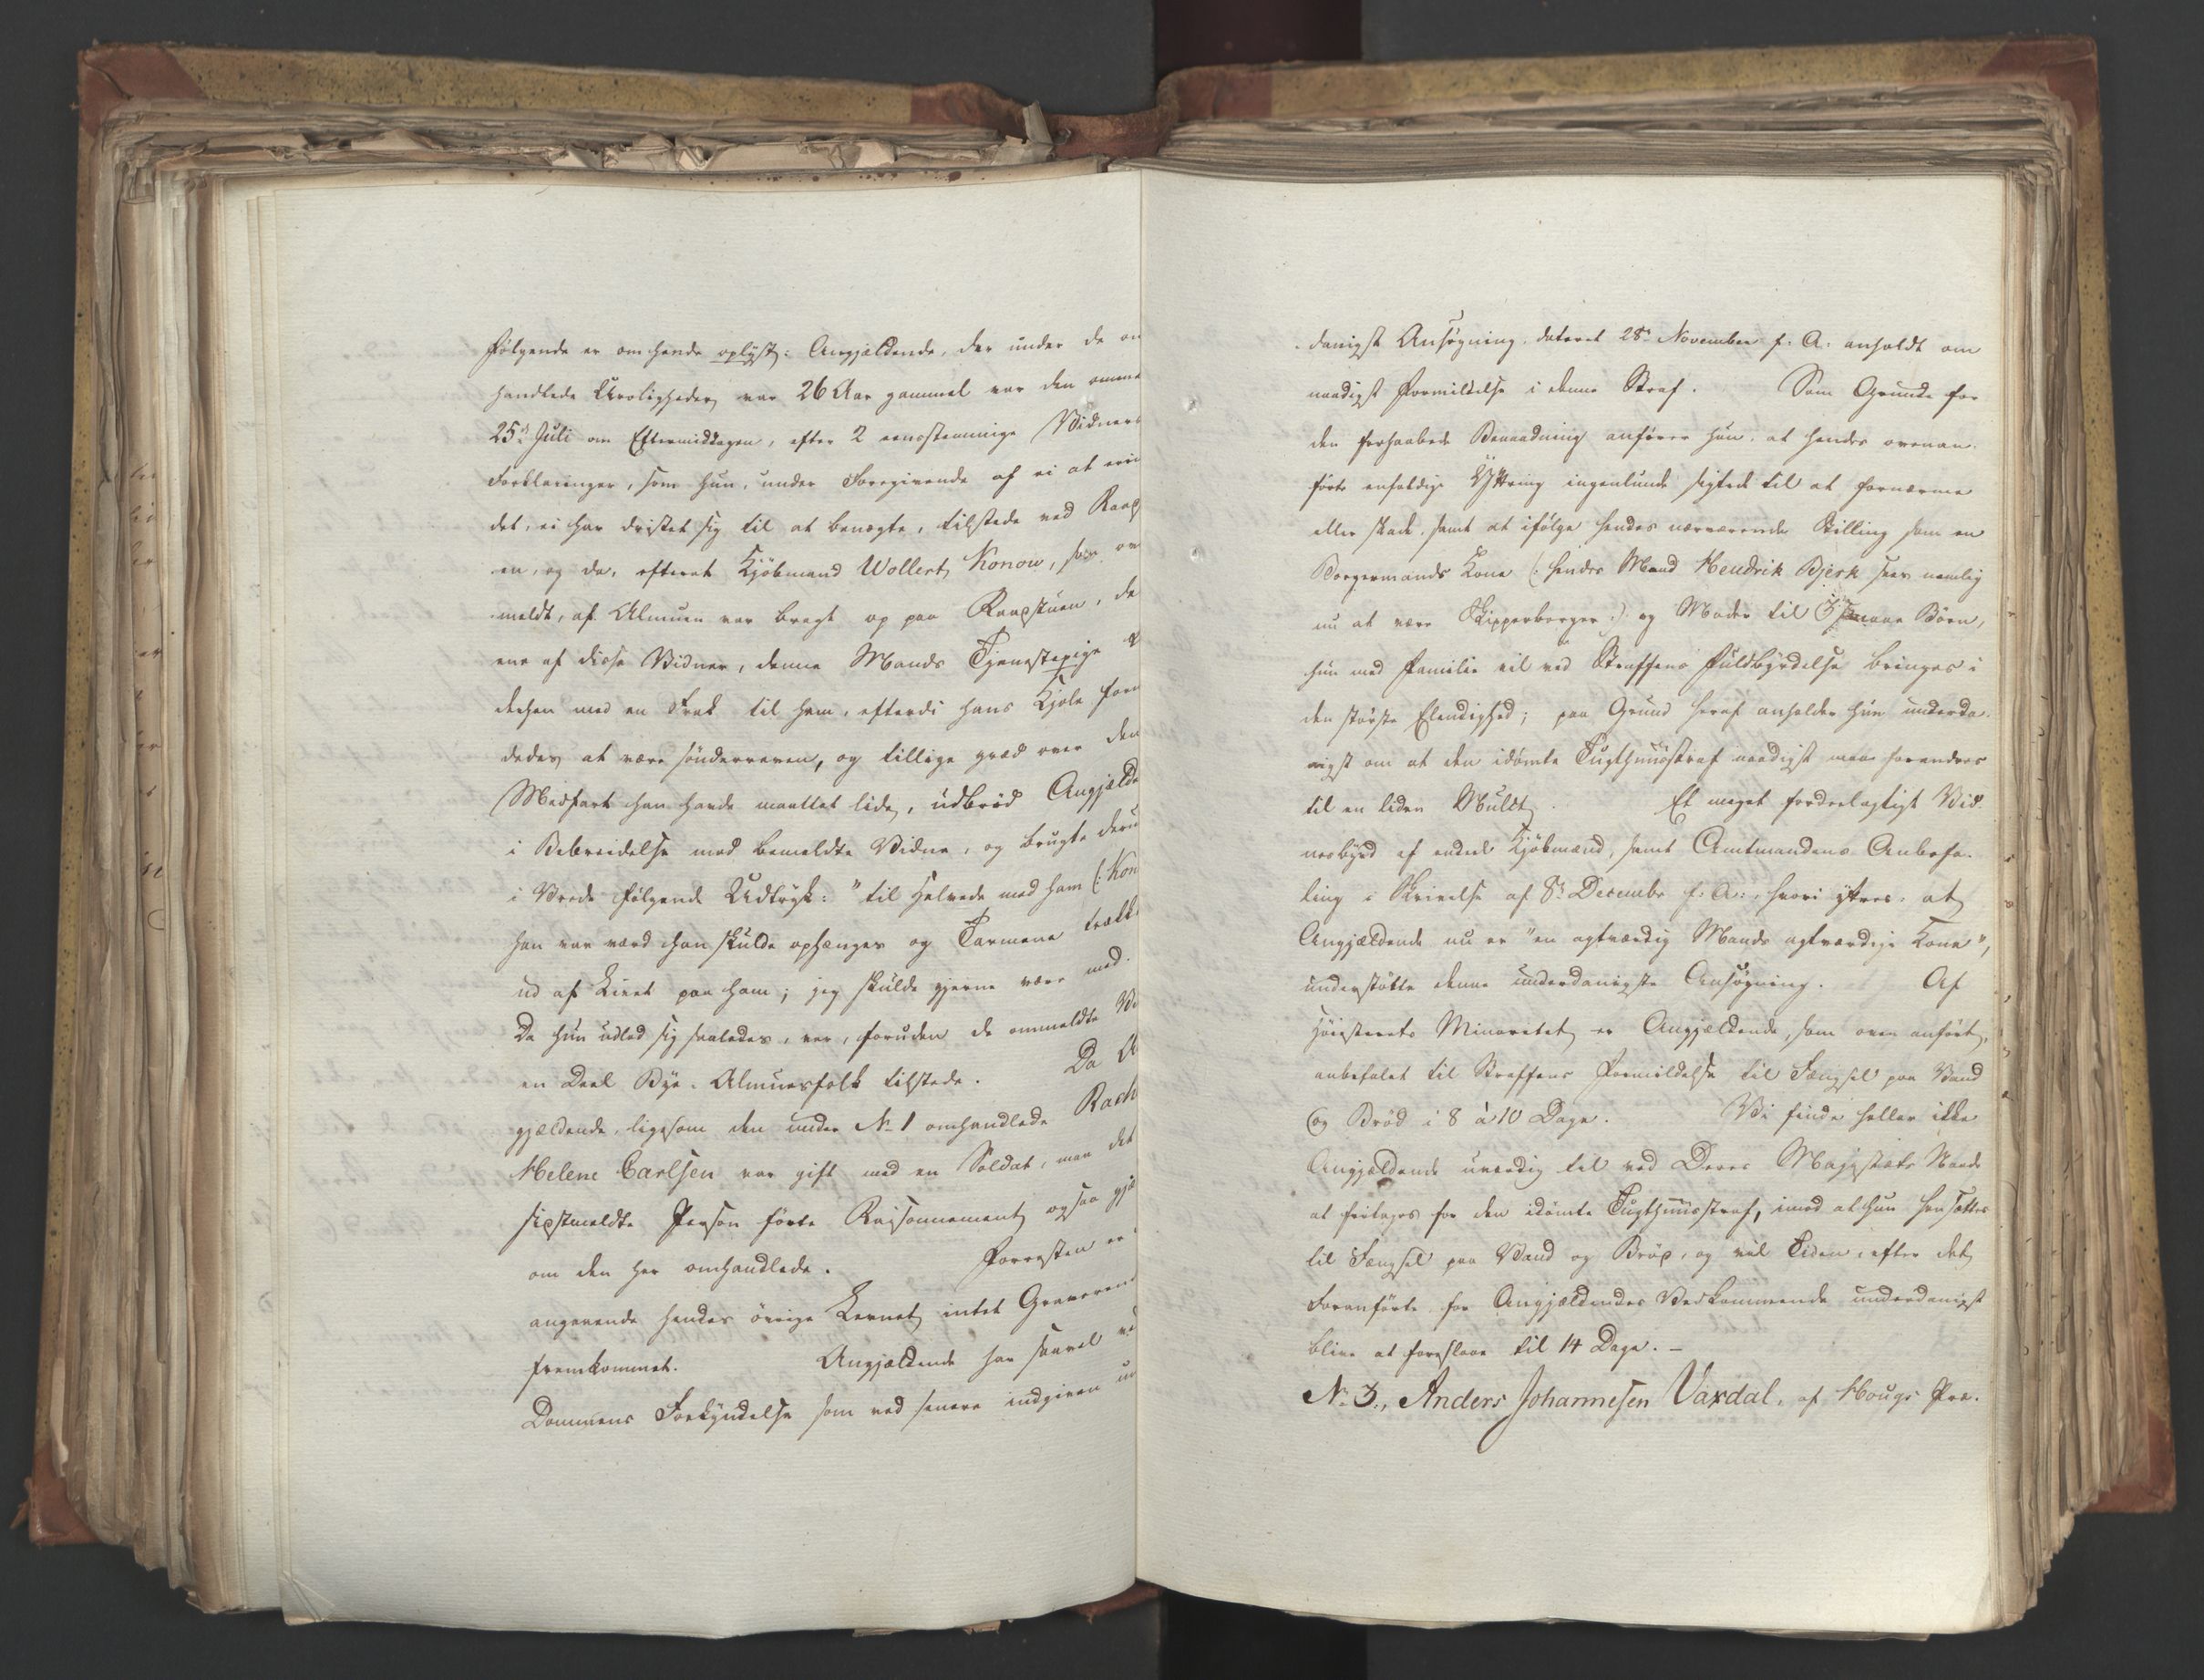 følgende er om hende oplyst: Angjældende, der under de om
handlede Uroligheder var 26 Aar gammel var den omme
25de Juli om Eftermiddagen, efter 2 eensstemmige Vidners
Forklaringer, som hun, under Foregivende af ei at erin
det, ei har dristet sig til at benægte, tilstede ved Raads
en, og da, efterat Kjöbmand Wollert Konow, som om
meldt, af Almuen var bragt op paa Raadstuen, de
ene af disse Vidner, denne Mands Tjenestepige
derhen med en Frak til ham, efterdi hans Kjole form
dedes at være sönderreven, og tillige græd over den
Medfart han havde maattet lide, udbröd Angjælde
i Bebreidelse mod bemeldte Vidne, og brugte deru
i Vrede følgende Udtryk: "til Helvede med ham (: Kon
han var værd han skulde ophænges og Tarmene trækk
ud af Livet paa ham; jeg skulde gjerne være med.
Da hun udlod sig saaledes, var, foruden de ommeldte Vi
en Deel Bye-Almuesfolk tilstede. Da A
gjældende, ligesom den under No 1 omhandlede Rach
Helene Carlsen var gift med en Soldat, maa det
sidstmeldte Person førte Raisonnement ogsaa gjæ
om den her omhandlede. Forresten er
angaaende hendes övrige Levnet intet Graveren
fremkommet. Angjældende har saavel ve
Dommens Forkyndelse som ved senere indgiven un
danigst Ansøgning, dateret 28de November f. A. anholdt om
naadigst Formildelse i denne Straf. Som Grunde for
den forhaabede Benaadning anfører hun, at hendes ovenan-
førte enfoldige Yttring ingenlunde sigtede til at fornærme
eller skade, samt at ifølge hendes nærværende Stilling som en
Borgermands Kone (: hendes Mand Hendrik Bjerk sees nemlig
nu at være Skipperborger :) og Moder til 3 smaae Börn,
hun med Familie vil ved Straffens Fuldbyrdelse bringes i
den störste Elendighed; paa Grund heraf anholder hun underda-
nigst om at den idömte Tugthuusstraf naadigst maa forandres
til en liden Mulct. Et meget fordeelagtigt Vid-
nesbyrd af endeel Kjöbmænd, samt Amtmandens Anbefa-
ling i Skrivelse af 8de Decembr f. A., hvori yttres, at
Angjældende nu er "en agtværdig Mands agtværdige Kone",
understötte denne underdanigste Ansögning. Af
Höiesterets Minoritet er Angjældende, som oven anført,
anbefalet til Straffens Formildelse til Fængsel paa Vand
og Bröd i 8 à 10 Dage. Vi finde heller ikke
Angjældende uværdig til ved Deres Majestæts Naade
at fritages for den idömte Tugthuusstraf, imod at hun hensættes
til Fængsel paa Vand og Bröd, og vil Tiden, efter det
Foranførte for Angjældendes Vedkommende underdanigst
blive at foreslaae til 14 Dage. –
No 3., Anders Johannesen Vaxdal, af Hougs Præ-